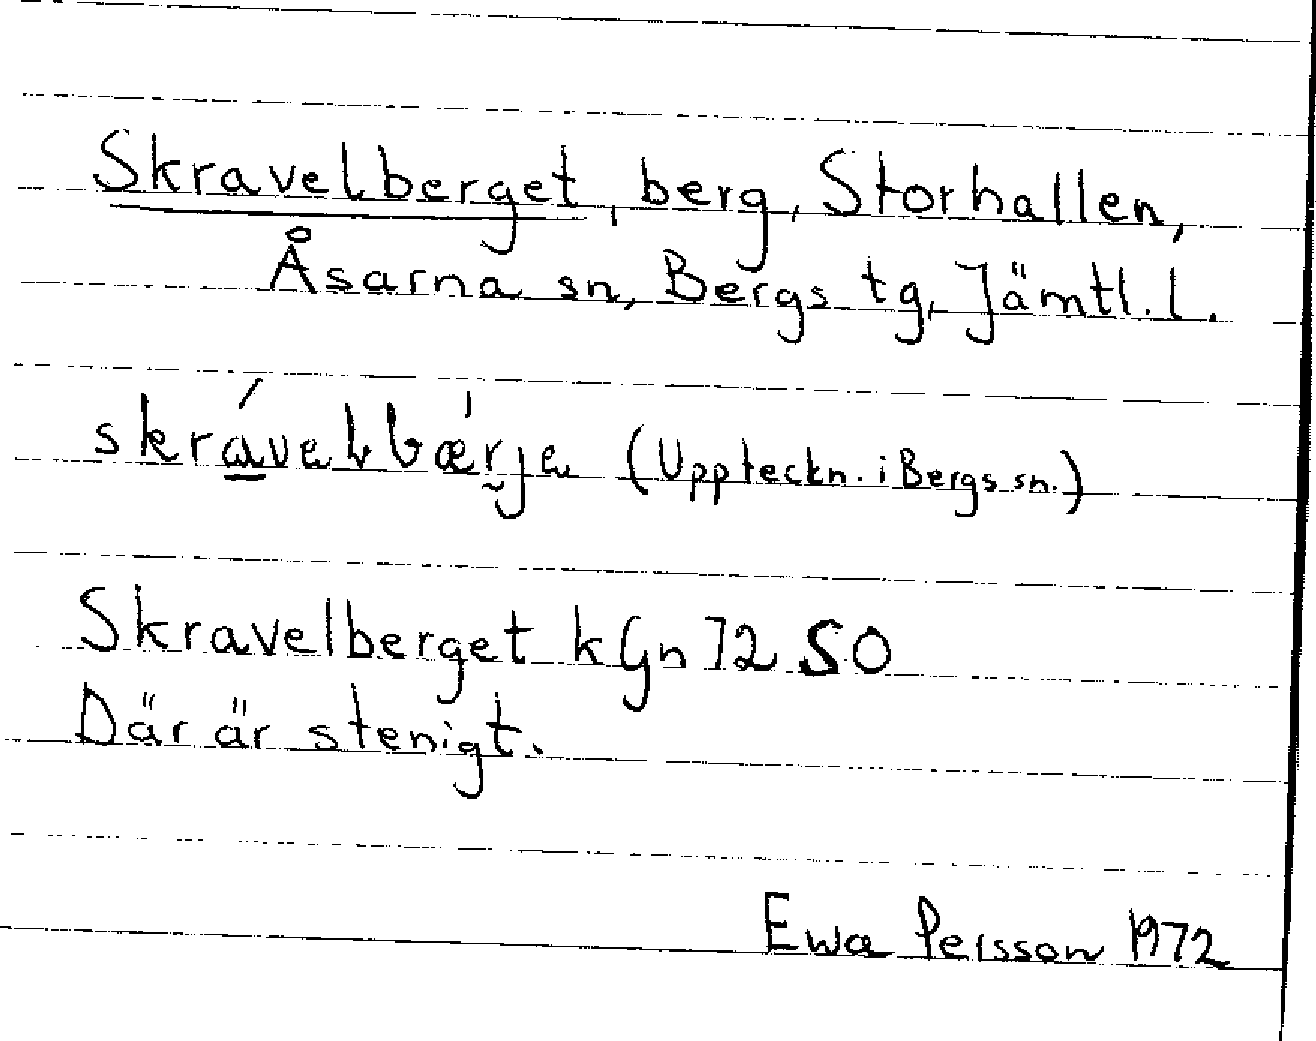 Skravelberget, berg, Storhallen,
Åsarna sn, Bergs tg, Jämtl. l.
skrávelbæ̀rje (Uppteckn. i Bergs sn.)
Skravelberget kGn 72 SO
Där är stenigt.
Ewa Persson 1972